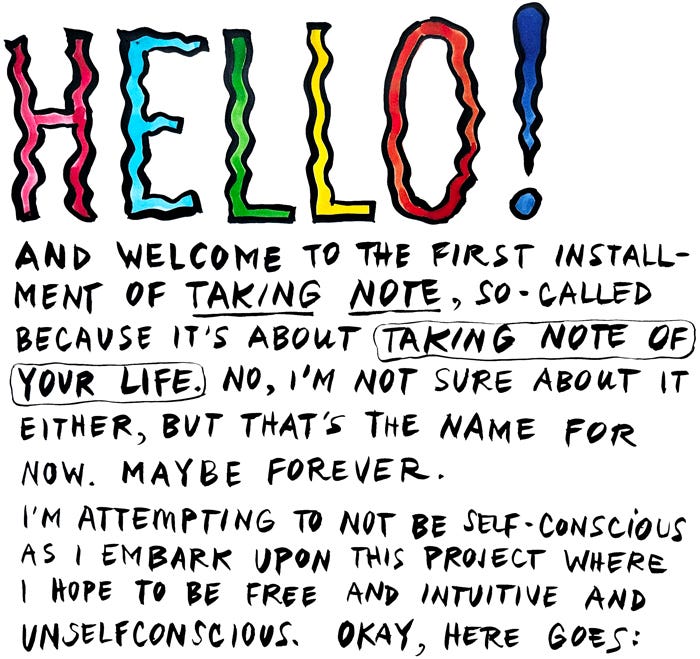 HELLO!
AND WELCOME TO THE FIRST INSTALL-
MENT OF TAKING NOTE, SO-CALLED
BECAUSE IT'S ABOUT TAKING NOTE OF
YOUR LIFE. NO, I'M NOT SURE ABOUT IT
EITHER, BUT THAT'S THE NAME FOR
NOW. MAYBE FOREVER.
I'M ATTEMPTING TO NOT BE SELF-CONSCIOUS
AS I EMBARK UPON THIS PROJECT WHERE
I HOPE TO BE FREE AND INTUITIVE AND
UNSELFCONSCIOUS. OKAY, HERE GOES: